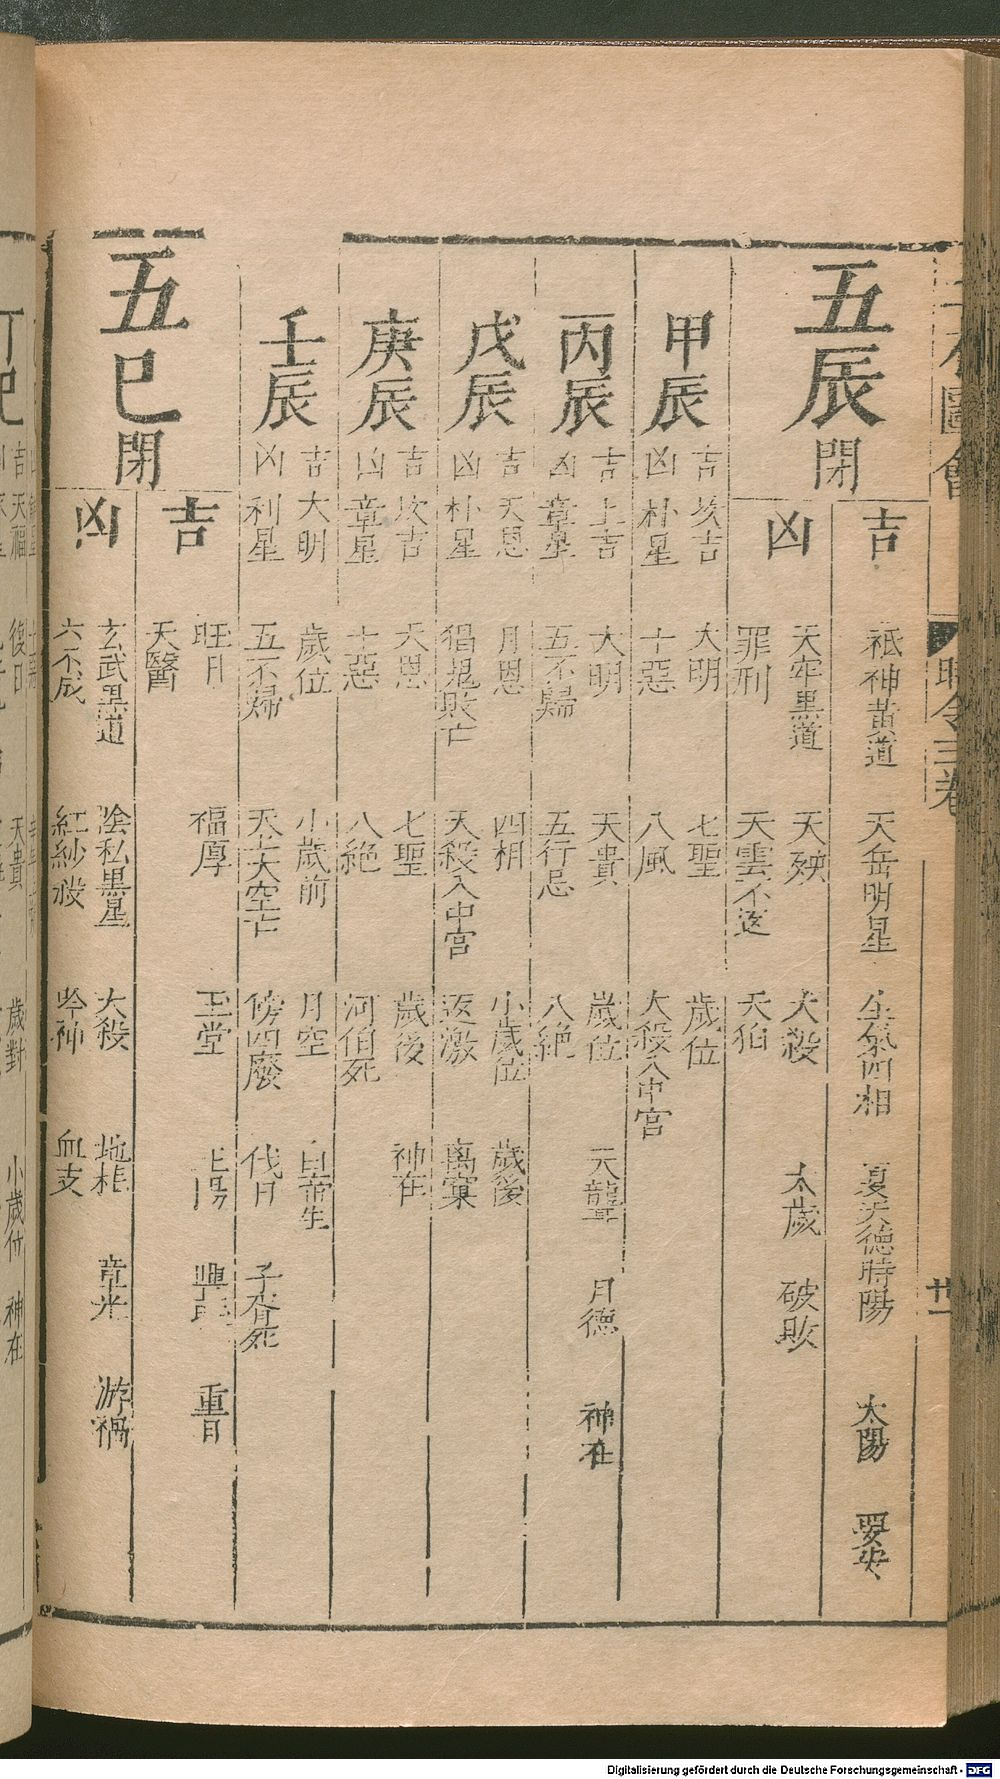 圖會
時令三卷
廿一
五辰閉
吉
祗神黃道 天岳明星 生氣四相 夏天德時陽 太陽 要安
凶
天牢黑道 天殃 大殺 太歲 破敗
罪刑 天雲不返 天狛
甲辰
吉 坎吉 大明 七聖 歲位
凶 朴星 十惡 八風 大殺入中宮
丙辰
吉 上吉 大明 天貴 歲位 天聾 月德 神在
凶 章星 五不歸 五行忌 八絕
戊辰
吉 天恩 月恩 四相 小歲位 歲後
凶 朴星 猖鬼敗亡 天殺入中宮 返激 離窠
庚辰
吉 坎吉 天恩 七聖 歲後 神在
凶 章星 十惡 八絕 河伯死
壬辰
吉 大明 歲位 小歲前 月空 白帝生
凶 利星 五不歸 天上大空亡 傍四廢 伐日 子胥死
五巳閉
吉
旺日 福厚 玉堂 上陽 興 重日
天醫
凶
玄武黑道 陰私黑星 大殺 地柤 章光 游禍
六不成 紅紗殺 吟神 血支
丁巳
吉 天福 復日 天貴 歲對 小歲位 神在
Digitalisierung gefördert durch die Deutsche Forschungsgemeinschaft - DFG